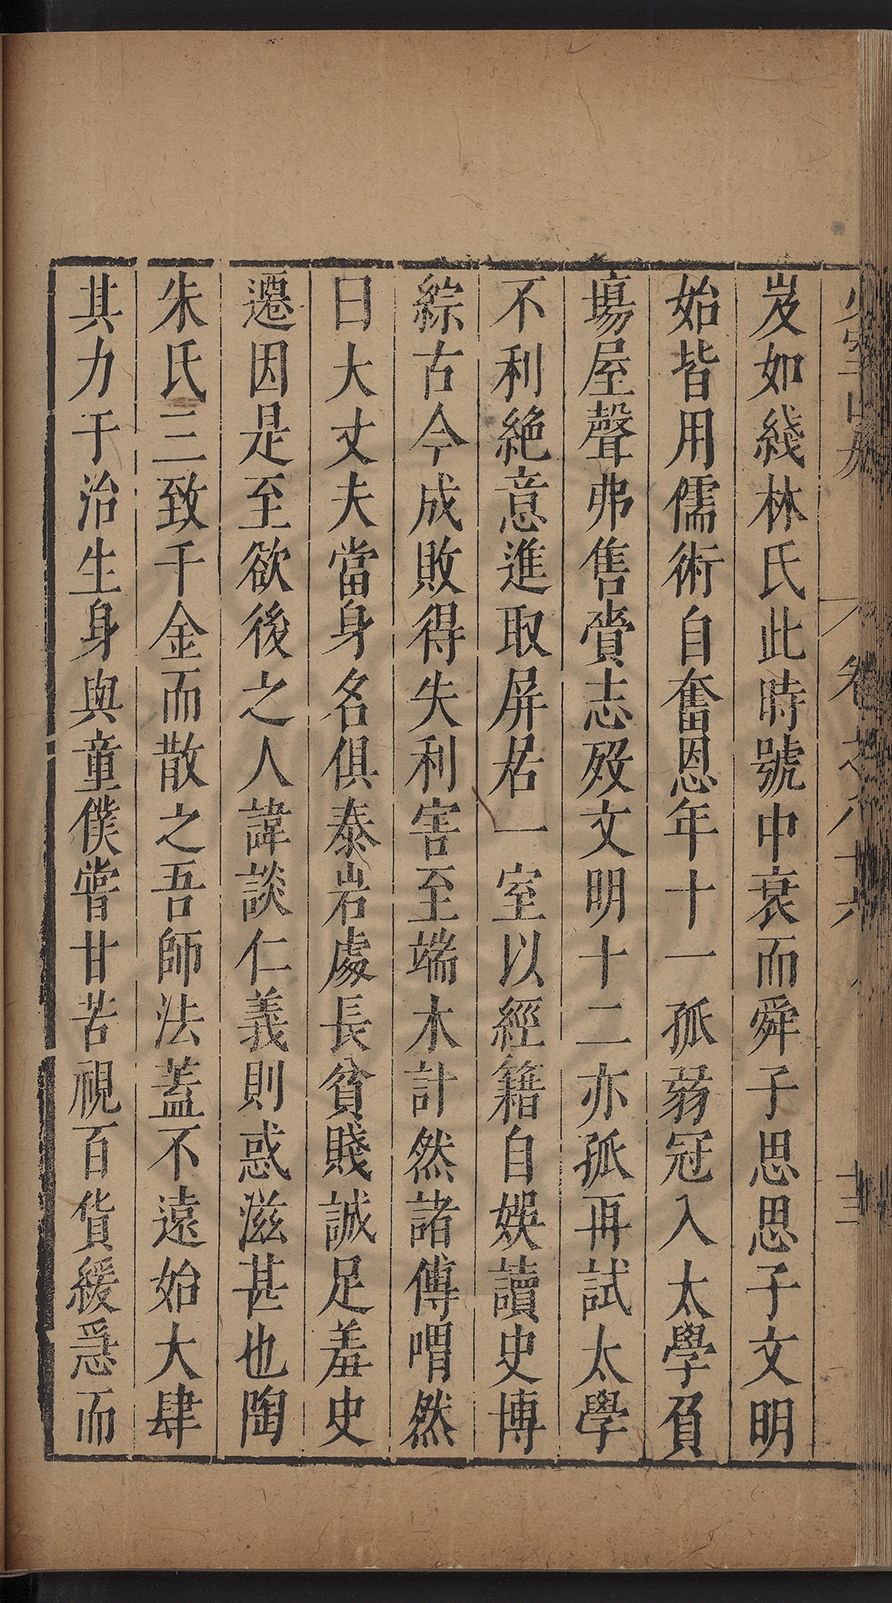 岌如綫林氏此時號中衰而舜子思思子文明
始皆用儒術自奮恩年十一孤弱冠入太學負
塲屋聲弗售賫志歿文明十二亦孤再試太學
不利絶意進取屏居一室以經籍自娛讀史博
綜古今成敗得失利害至端木計然諸傳喟然
曰大丈夫當身名俱泰岩處長貧賤誠足羞史
遷因是至欲後之人諱談仁義則惑滋甚也陶
朱氏三致千金而散之吾師法蓋不遠始大肆
其力于治生身與童僕嘗甘苦視百貨緩急而